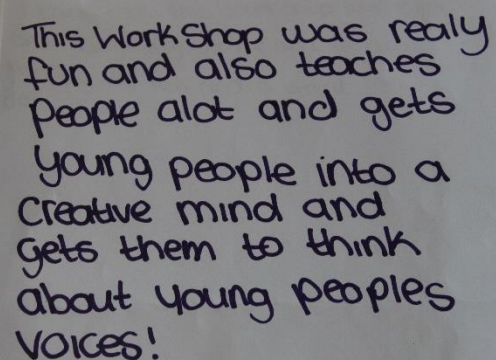 This Workshop was realy
fun and also teaches
people alot and gets
young people into a
creative mind and
gets them to think
about young peoples
voices!